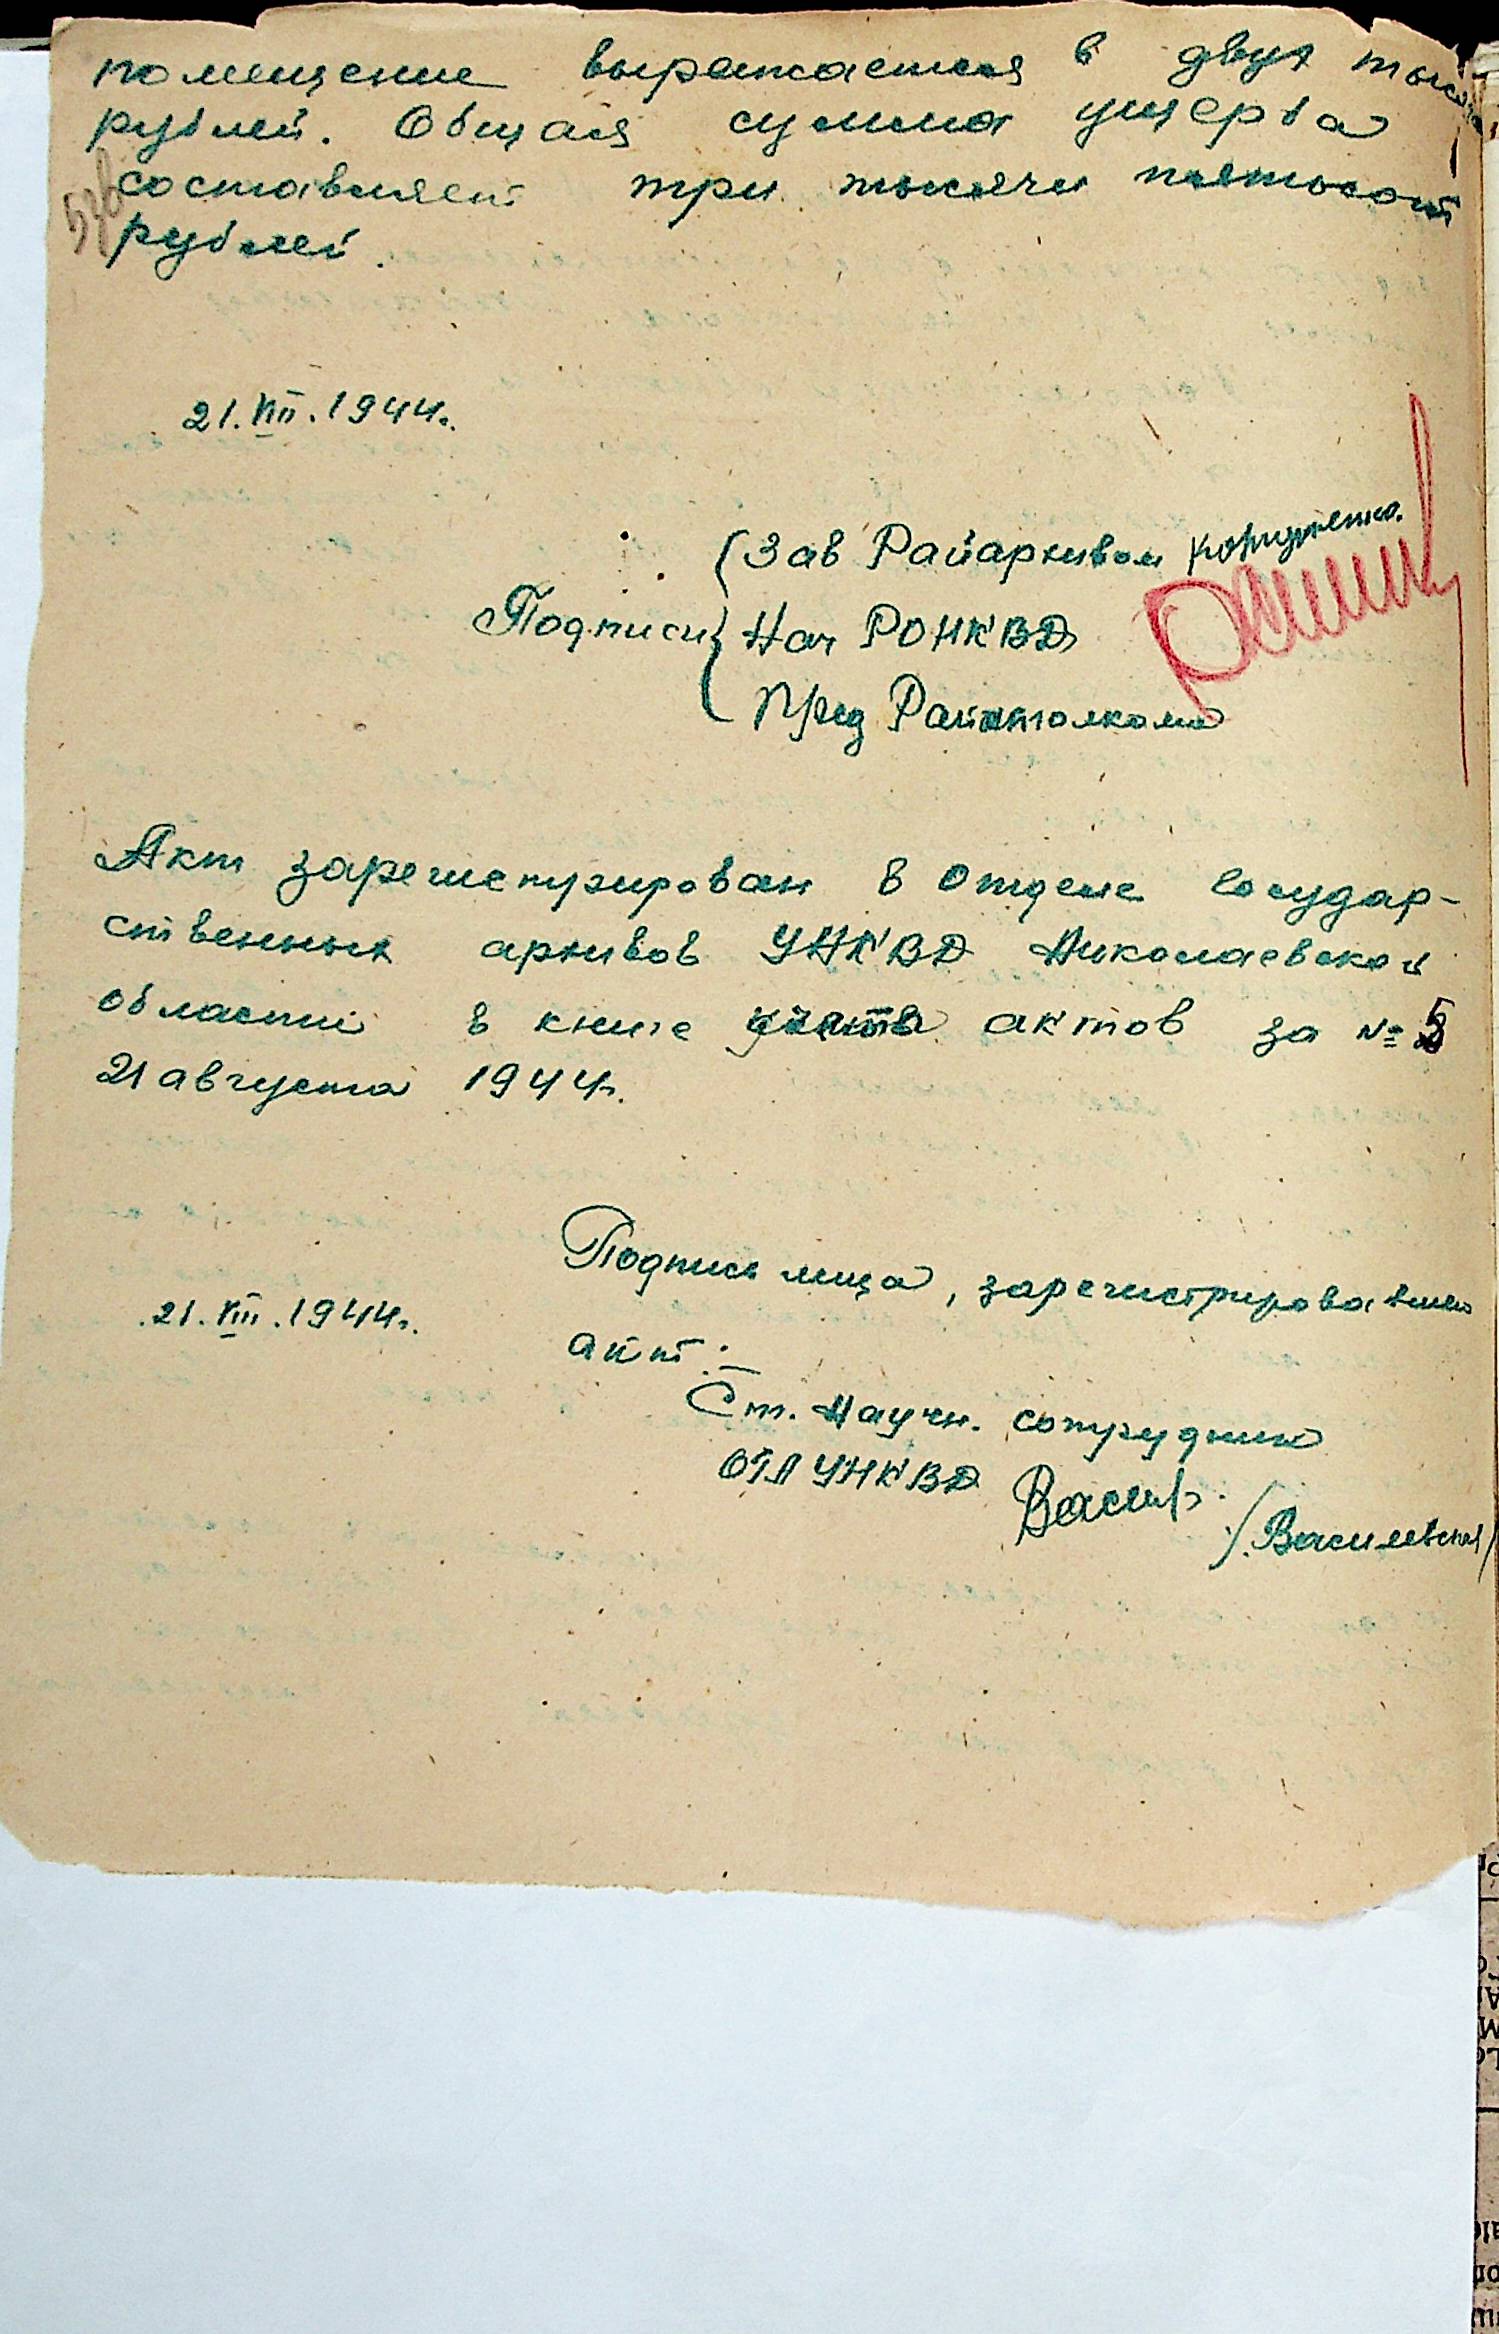 помещение выражается в двух тысяч
рублей. Общая сумма ущерба
составляет три тысячи пятьсот
рублей.
21.VIII.1944г.
Зав Райархивом
Подписи Нач РОНКВД
Пред Райисполкома
Акт зарегистрирован в Отделе Государ-
ственных архивов УНКВД Николаевской
области в книге учета актов за № 5
21 августа 1944г.
Подпись лица, зарегистрировавшего
21.VIII.1944г.
акт:
Ст. Научн. сотрудник
ОГА УНКВД Васил.
/Василевская/